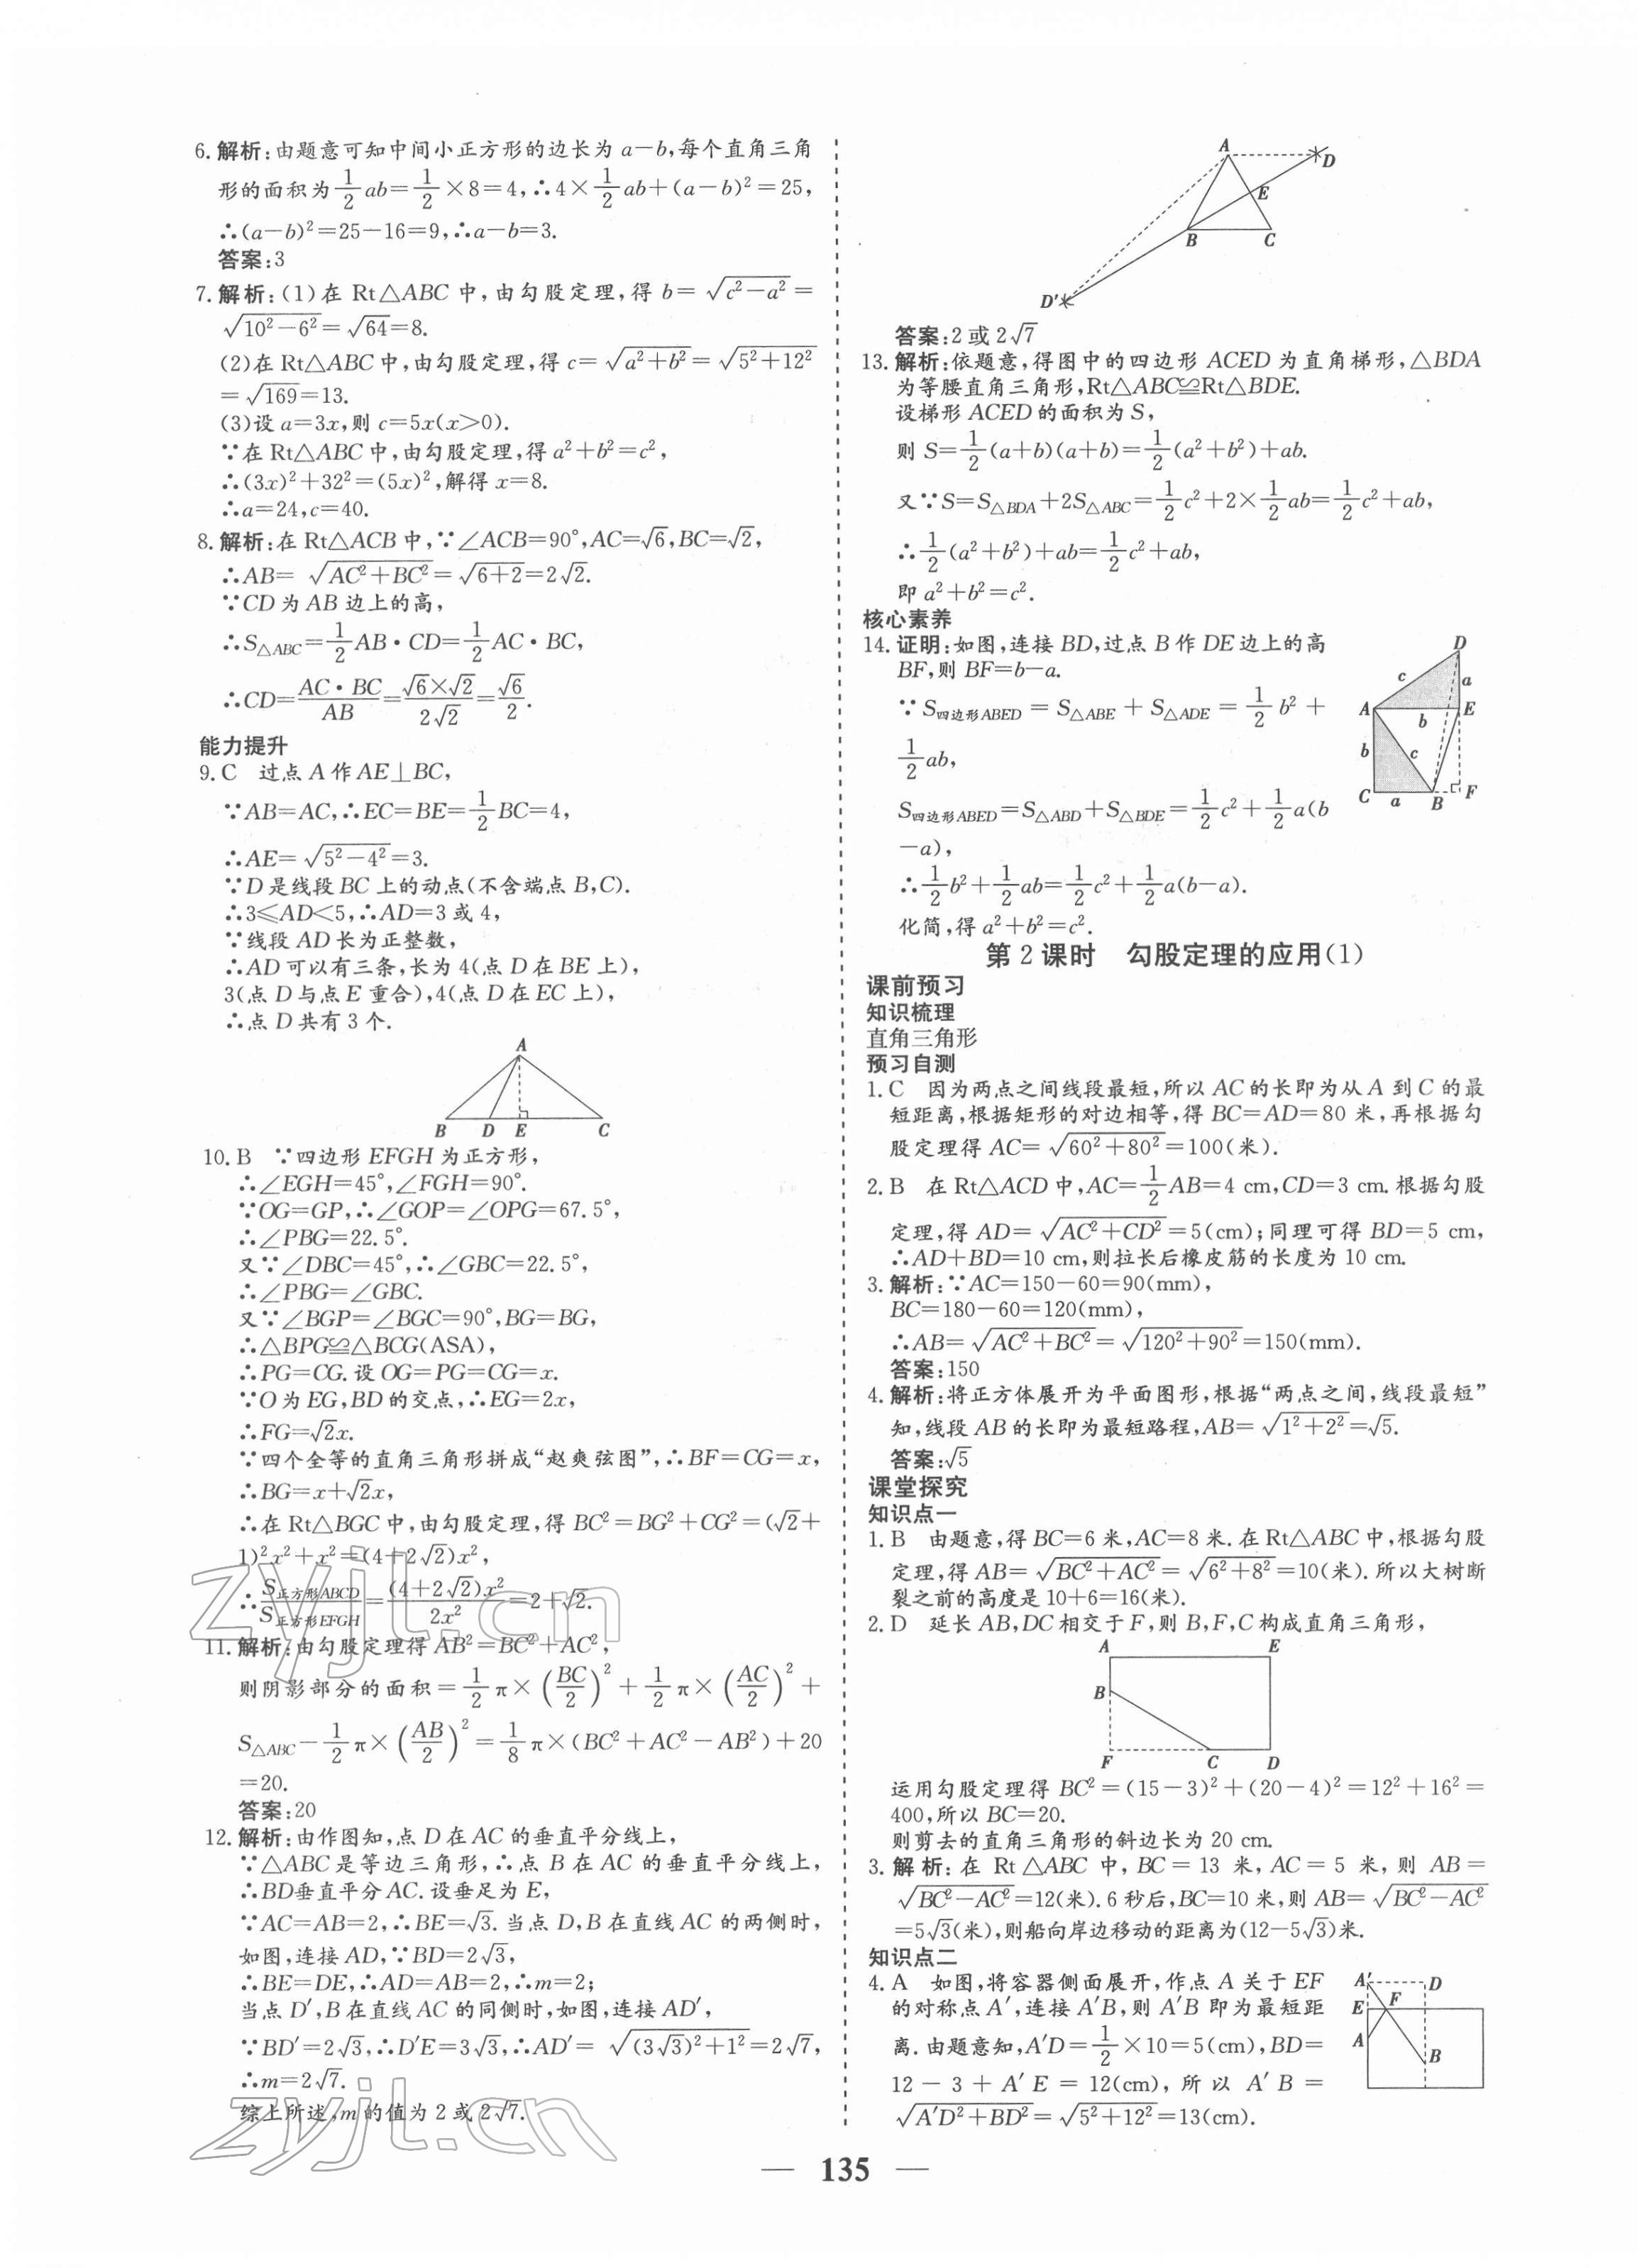 6.解析:由题意可知中间小正方形的边长为 a-b,每个直角三角
形的面积为1/2ab=1/2×8=4,∴4×1/2ab+(a-b)²=25,
∴(a-b)²=25-16=9,∴a-b=3.
答案:3
7.解析:(1)在 Rt△ABC 中,由勾股定理,得 b=√(c²-a²)=
√(10²-6²)=√64=8.
(2)在 Rt△ABC 中,由勾股定理,得 c=√(a²+b²)=√(5²+12²)
=√169=13.
(3)设 a=3x,则 c=5x(x>0).
∵在 Rt△ABC 中,由勾股定理,得 a²+b²=c²,
∴(3x)²+32²=(5x)²,解得 x=8.
∴a=24,c=40.
8.解析:在 Rt△ACB 中,∵∠ACB=90°,AC=√6,BC=√2,
∴AB=√(AC²+BC²)=√(6+2)=2√2.
∵CD 为 AB 边上的高,
∴S△ABC=1/2AB·CD=1/2AC·BC,
∴CD=AC·BC/AB=√6×√2/2√2=√6/2.
能力提升
9.C 过点 A 作 AE⊥BC,
∵AB=AC,∴EC=BE=1/2BC=4,
∴AE=√(5²-4²)=3.
∵D 是线段 BC 上的动点(不含端点 B,C).
∴3≤AD<5,∴AD=3 或 4,
∵线段 AD 长为正整数,
∴AD 可以有三条,长为 4(点 D 在 BE 上),
3(点 D 与点 E 重合),4(点 D 在 EC 上),
∴点 D 共有 3 个.
A
B D E C
10.B ∵四边形 EFGH 为正方形,
∴∠EGH=45°,∠FGH=90°.
∵OG=GP,∴∠GOP=∠OPG=67.5°,
∴∠PBG=22.5°.
又∵∠DBC=45°,∴∠GBC=22.5°,
∴∠PBG=∠GBC.
又∵∠BGP=∠BGC=90°,BG=BG,
∴△BPG≌△BCG(ASA),
∴PG=CG.设 OG=PG=CG=x.
∵O 为 EG,BD 的交点,∴EG=2x,
∴FG=√2x.
∵四个全等的直角三角形拼成“赵爽弦图”,∴BF=CG=x,
∴BG=x+√2x,
∴在 Rt△BGC 中,由勾股定理,得 BC²=BG²+CG²=(√2+
1)²x²+x²=(4+2√2)x²,
∴S正方形ABCD/S正方形EFGH=(4+2√2)x²/2x²=2+√2.
11.解析:由勾股定理得 AB²=BC²+AC²,
则阴影部分的面积=1/2π×(BC/2)²+1/2π×(AC/2)²+
S△ABC-1/2π×(AB/2)²=1/8π×(BC²+AC²-AB²)+20
=20.
答案:20
12.解析:由作图知,点 D 在 AC 的垂直平分线上,
∵△ABC 是等边三角形,∴点 B 在 AC 的垂直平分线上,
∴BD垂直平分 AC.设垂足为 E,
∵AC=AB=2,∴BE=√3.当点 D,B 在直线 AC 的两侧时,
如图,连接 AD,∵BD=2√3,
∴BE=DE,∴AD=AB=2,∴m=2;
当点 D′,B 在直线 AC 的同侧时,如图,连接 AD′,
∵BD′=2√3,∴D′E=3√3,∴AD′=√((3√3)²+1²)=2√7,
∴m=2√7.
综上所述,m 的值为 2 或 2√7.
A
D
E
B C
D′
答案:2 或 2√7
13.解析:依题意,得图中的四边形 ACED 为直角梯形,△BDA
为等腰直角三角形,Rt△ABC≌Rt△BDE.
设梯形 ACED 的面积为 S,
则 S=1/2(a+b)(a+b)=1/2(a²+b²)+ab.
又∵S=S△BDA+2S△ABC=1/2c²+2×1/2ab=1/2c²+ab,
∴1/2(a²+b²)+ab=1/2c²+ab,
即 a²+b²=c².
核心素养
14.证明:如图,连接 BD,过点 B 作 DE 边上的高
BF,则 BF=b-a.
∵S四边形ABED=S△ABE+S△ADE=1/2b²+
1/2ab,
S四边形ABED=S△ABD+S△BDE=1/2c²+1/2a(b
-a),
∴1/2b²+1/2ab=1/2c²+1/2a(b-a).
化简,得 a²+b²=c².
D
c a
A b E
b c
C a B F
第 2 课时 勾股定理的应用(1)
课前预习
知识梳理
直角三角形
预习自测
1.C 因为两点之间线段最短,所以 AC 的长即为从 A 到 C 的最
短距离,根据矩形的对边相等,得 BC=AD=80 米,再根据勾
股定理得 AC=√(60²+80²)=100(米).
2.B 在 Rt△ACD 中,AC=1/2AB=4 cm,CD=3 cm.根据勾股
定理,得 AD=√(AC²+CD²)=5(cm);同理可得 BD=5 cm,
∴AD+BD=10 cm,则拉长后橡皮筋的长度为 10 cm.
3.解析:∵AC=150-60=90(mm),
BC=180-60=120(mm),
∴AB=√(AC²+BC²)=√(120²+90²)=150(mm).
答案:150
4.解析:将正方体展开为平面图形,根据“两点之间,线段最短”
知,线段 AB 的长即为最短路程,AB=√(1²+2²)=√5.
答案:√5
课堂探究
知识点一
1.B 由题意,得 BC=6 米,AC=8 米.在 Rt△ABC 中,根据勾股
定理,得 AB=√(BC²+AC²)=√(6²+8²)=10(米).所以大树断
裂之前的高度是 10+6=16(米).
2.D 延长 AB,DC 相交于 F,则 B,F,C 构成直角三角形,
A E
B
F C D
运用勾股定理得 BC²=(15-3)²+(20-4)²=12²+16²=
400,所以 BC=20.
则剪去的直角三角形的斜边长为 20 cm.
3.解析:在 Rt△ABC 中,BC=13 米,AC=5 米,则 AB=
√(BC²-AC²)=12(米).6 秒后,BC=10 米,则 AB=√(BC²-AC²)
=5√3(米),则船向岸边移动的距离为(12-5√3)米.
知识点二
4.A 如图,将容器侧面展开,作点 A 关于 EF
的对称点 A′,连接 A′B,则 A′B 即为最短距
离.由题意知,A′D=1/2×10=5(cm),BD=
12-3+A′E=12(cm),所以 A′B=
√(A′D²+BD²)=√(5²+12²)=13(cm).
A′ D
E F
A
B
135
zyjl.cn
zyjl.cn